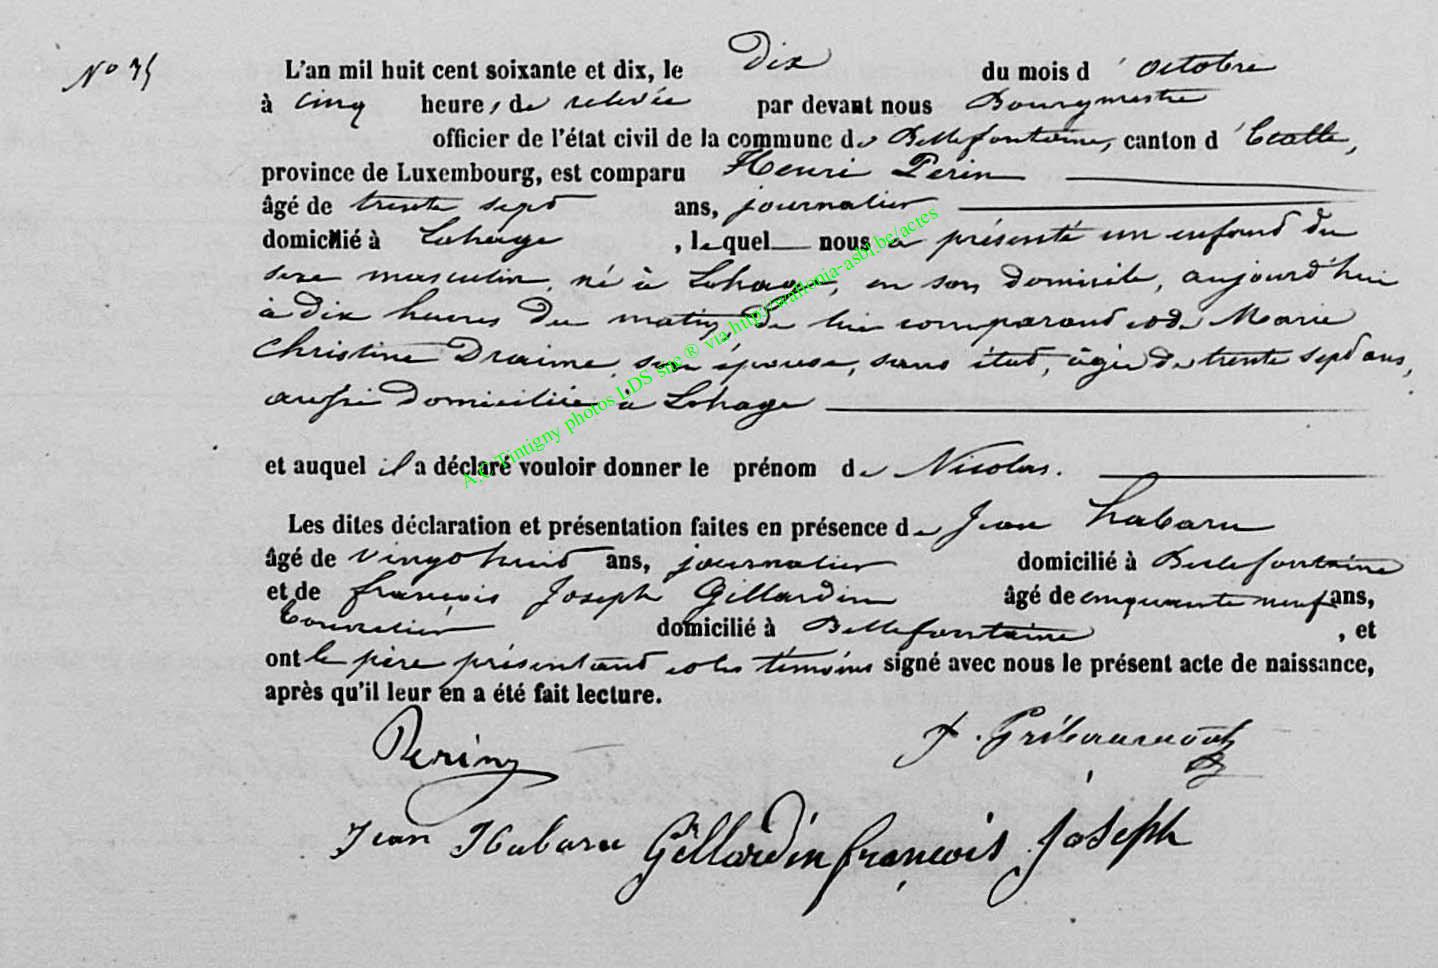 N° 35
L'an mil huit cent soixante et dix, le dix du mois d'octobre
à cinq heures de relevée par devant nous Bourgmestre
officier de l'état civil de la commune de Bellefontaine, canton d'Etalle,
province de Luxembourg, est comparu Henri Perin
âgé de trente sept ans, journalier
domicilié à Lahage, lequel nous a présenté un enfant du
sexe masculin, né à Lahage, en son domicile, aujourd'hui
à dix heures du matin, de lui comparant et de Marie
Christine Draime, son épouse, sans état, âgée de trente sept ans,
aussi domiciliée à Lahage
et auquel il a déclaré vouloir donner le prénom de Nicolas.
Les dites déclaration et présentation faites en présence de Jean Habaru
âgé de vingt huit ans, journalier domicilié à Bellefontaine
et de françois Joseph Gillardin âgé de cinquante neuf ans,
domicilié à Bellefontaine, et
ont le père présentant et les témoins signé avec nous le présent acte de naissance,
après qu'il leur en a été fait lecture.
Perin
Jean Habaru Gillardin françois Joseph
A.C. Tintigny photos LDS snc ® via http://wallonia-asbl.be/actes